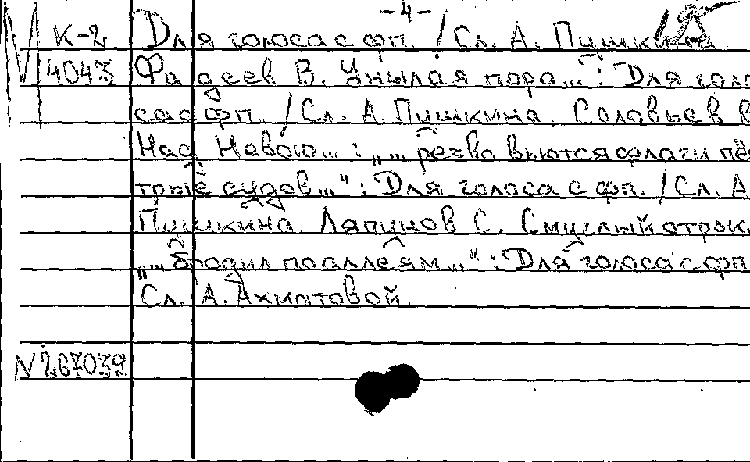 -4-
К-2 Для голоса с фп. / Сл. А. Пушкина
4043 Фадеев В. Унылая пора...: Для голо
са с фп. / Сл. А. Пушкина. Соловьев В
Над Невою...: „... резво вьются флаги пё
трые судов...": Для голоса с фп. / Сл. А.
Пушкина. Ляпунов С. Смуглый отрок
„... бродил по аллеям...": Для голоса с фп
Сл. А. Ахматовой.
N 267039